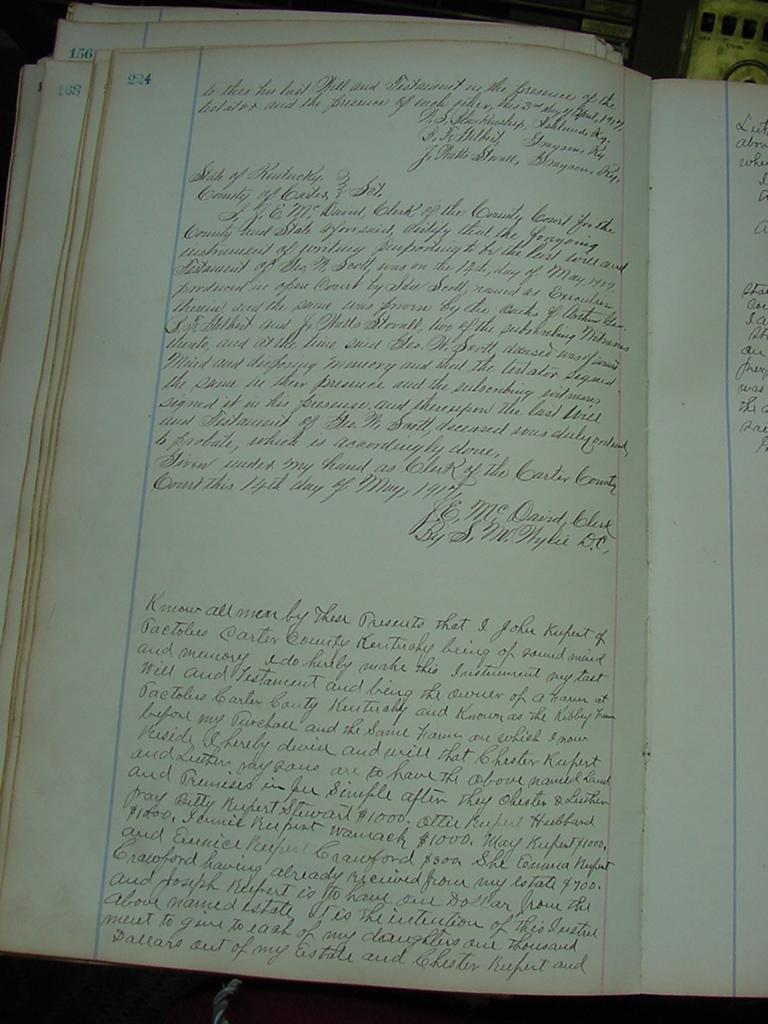 156
168
224
to this his last Will and Testament in the presence of the
testator and the presence of each other, this 3rd day of April, 1917.
Ashland, Ky.
Gilbert, Grayson, Ky.
J. Watts Stovall, Grayson, Ky.
State of Kentucky, } Sct.
County of Carter, }
I, J. E. McDavid, Clerk of the County Court for the
County and State aforesaid, certify that the foregoing
instrument of writing purporting to be the last will and
Testament of Geo. W. Scott, was on the 14th, day of May, 1917.
produced in open Court by Scott, named as
therein and the same was proven by the oaths of
Gilbert and J. Watts Stovall, two of the subscribing Witnesses
thereto, and at the time said Geo. W. Scott, deceased was of sound
Mind and disposing memory and that the testator signed
the same in their presence and the subscribing witnesses
signed it in his presence, and thereupon the last Will
and Testament of Geo. W. Scott, deceased was duly ordered
to probate, which is accordingly done,
Given under my hand as Clerk of the Carter County
Court this 14th day of May, 1917,
J. E. McDavid, Clerk
By S. M. Wylie D.C.
Know all men by These Presents that I John Rupert of
Pactolus Carter County Kentucky being of sound mind
and memory I do hereby make this Instrument my last
Will and Testament and being the owner of a Farm at
Pactolus Carter Couty Kentucky and Known as the Kibby Farm
before my Purchase and the Same Farm on which I now
Reside I hereby devise and will that Chester Rupert
and Luther my sons are to have the above named land
and Premises in fee Simple after they Chester & Luther
pay Betty Rupert Stewart $1000. Ottie Rupert Hubbard
$1000. Jennie Rupert Wamack $1000. May Rupert $1000.
and Eunice Rupert Crawford $300. She Emma Rupert
Crawford having already recieved from my estate $700.
and Joseph Rupert is to have one Dollar from the
above named estate It is the intention of this Instru
ment to give to each of my daughters one thousand
Dollars out of my Estate and Chester Rupert and